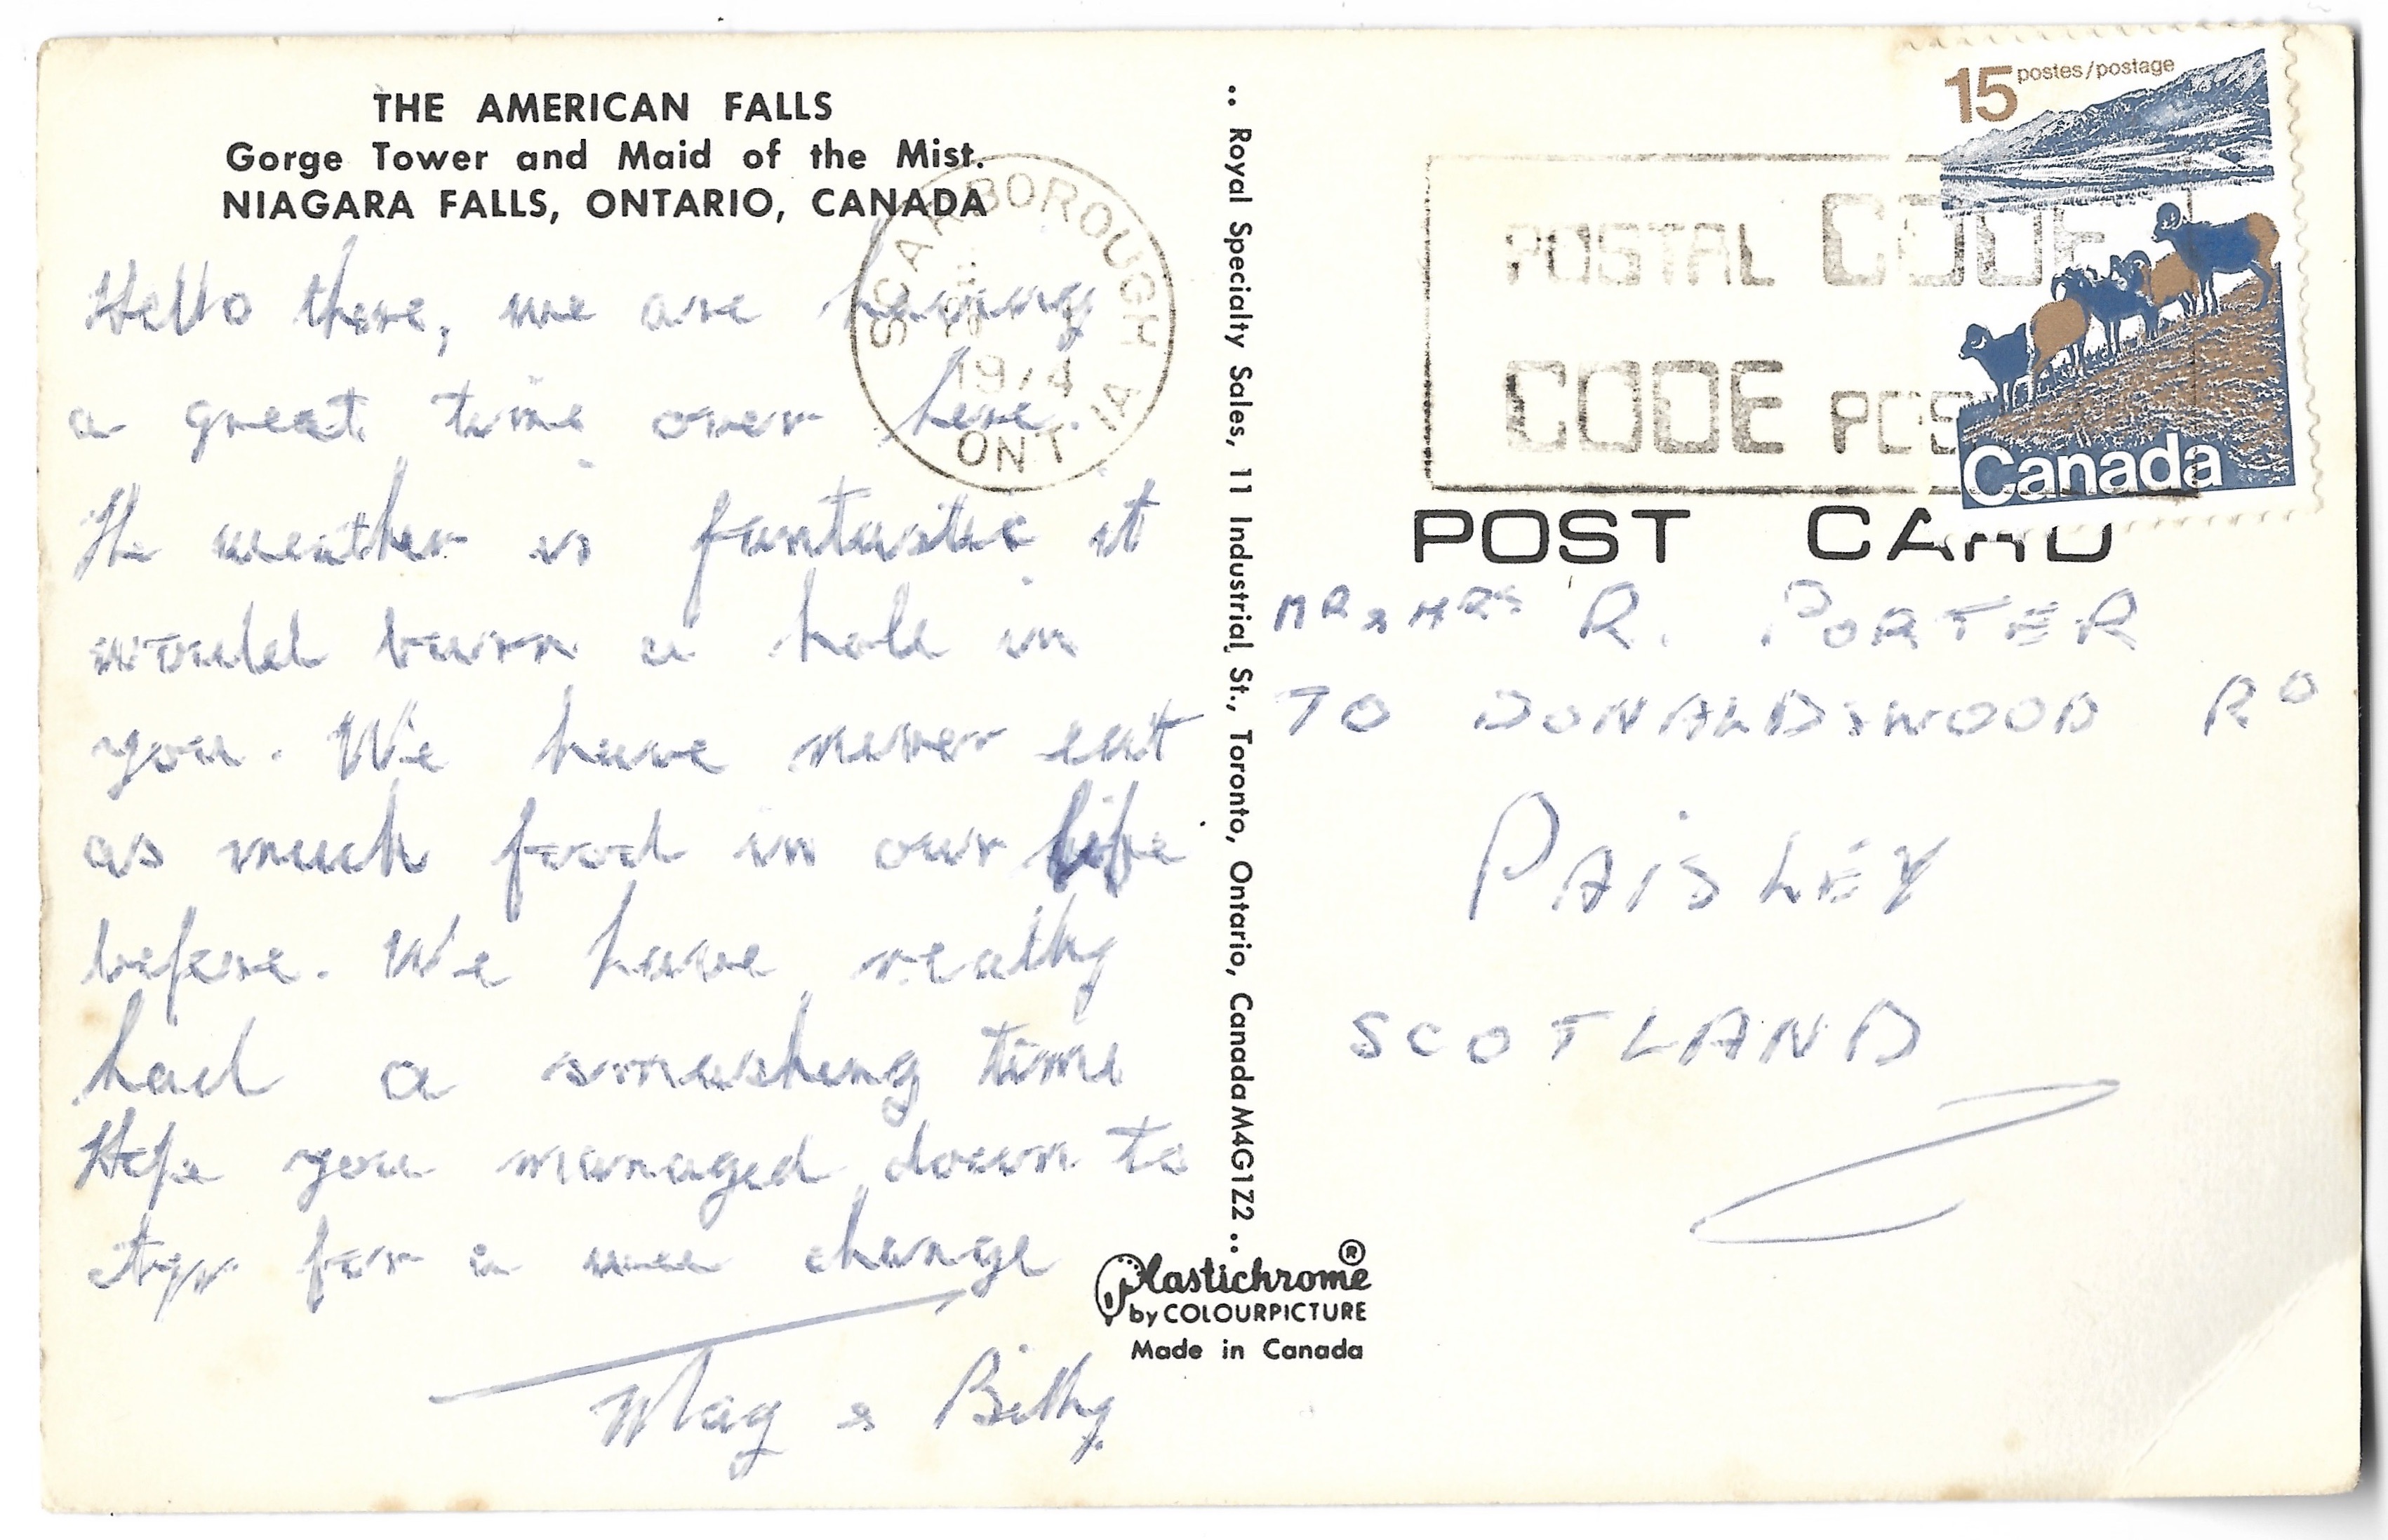 THE AMERICAN FALLS
Gorge Tower and Maid of the Mist.
NIAGARA FALLS, ONTARIO, CANADA
Hello there, we are having
a great time over here.
The weather is fantastic it
would burn a hole in
you. We have never eat
as much food in our life
before. We have really
had a smashing time
Hope you managed down to
for a wee change
May & Billy
SCARBOROUGH
1974
ONT
.. Royal Specialty Sales, 11 Industrial St., Toronto, Ontario, Canada M4G1Z2 ..
Plastichrome®
by COLOURPICTURE
Made in Canada
15 postes/postage
Canada
POSTAL CODE
CODE POS
POST CARD
MR & MRS R. PORTER
70 DONALDSWOOD RD
PAISLEY
SCOTLAND